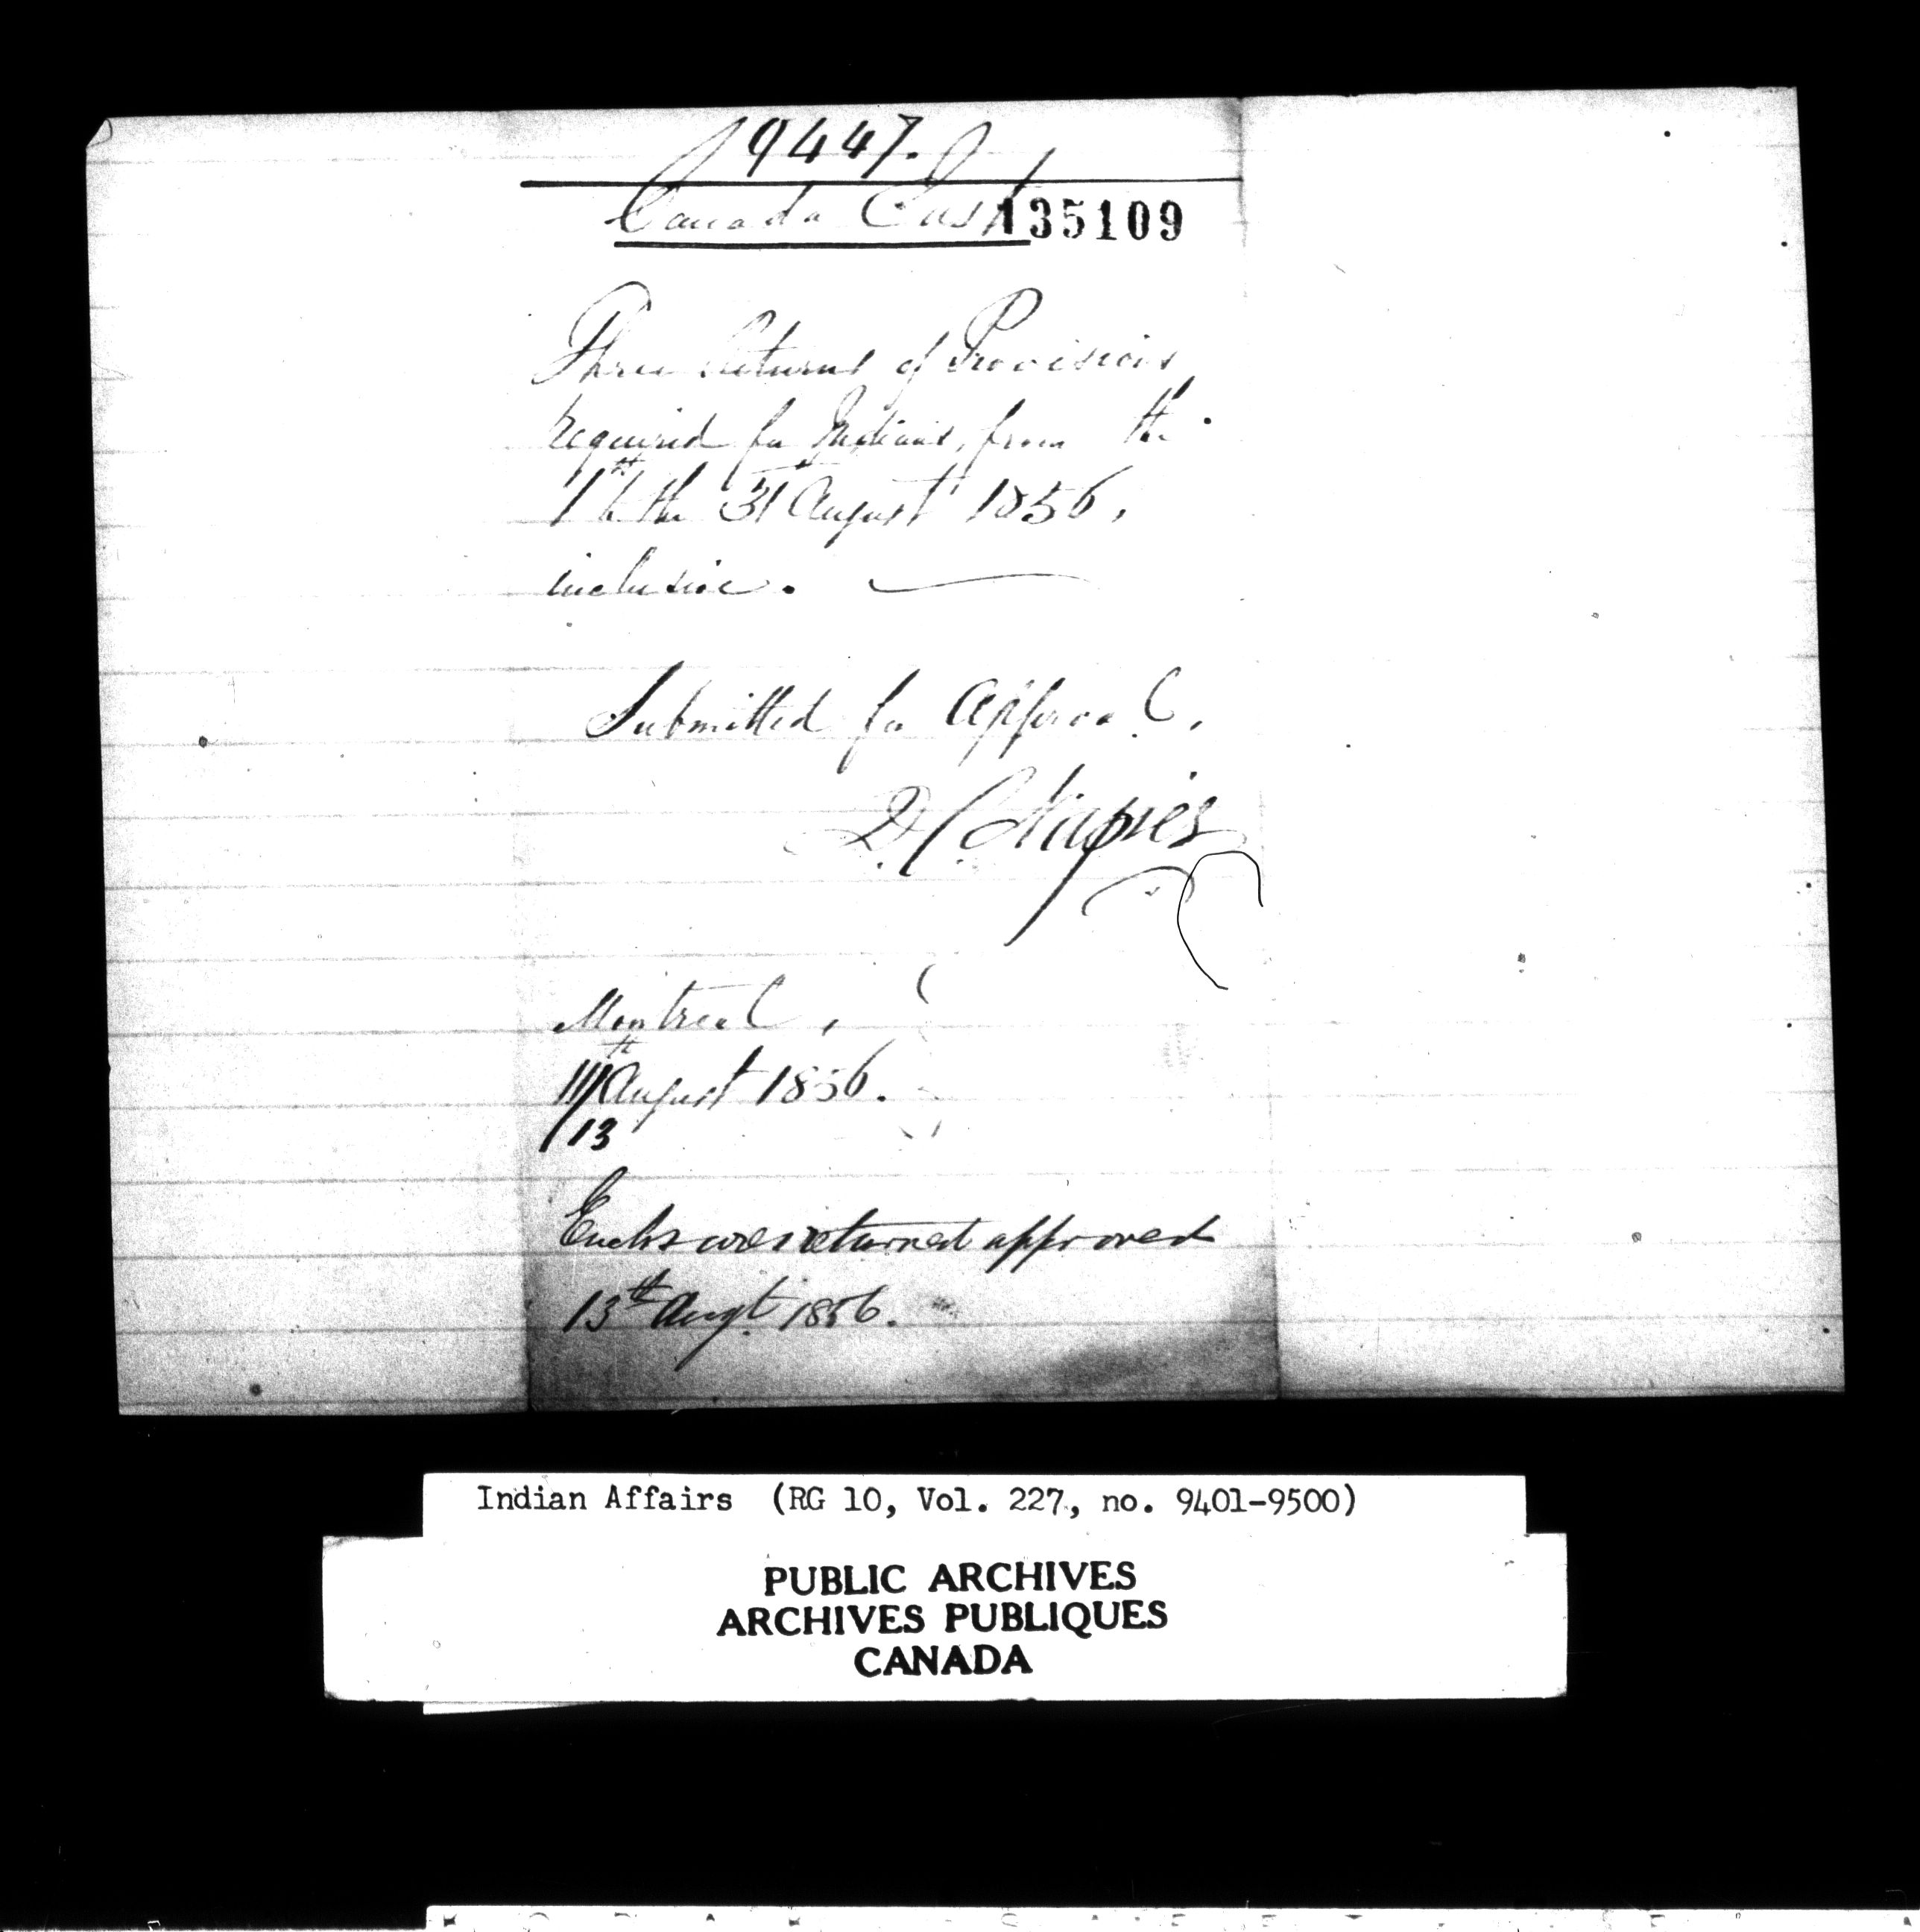 9447.
Canada East
135109
Three Returns of Provisions
required for Indians, from the
1st to the 31st August 1856,
inclusive.
Submitted for Approval,
D. C. Napier
Montreal,
11th August 1856.
/13
Encls were returned approved
13th Augt. 1856.
Indian Affairs (RG 10, Vol. 227, no. 9401-9500)
PUBLIC ARCHIVES
ARCHIVES PUBLIQUES
CANADA